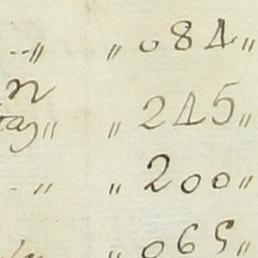 〃 〃 084〃
〃 〃 245〃
〃 〃 200〃
〃 065〃